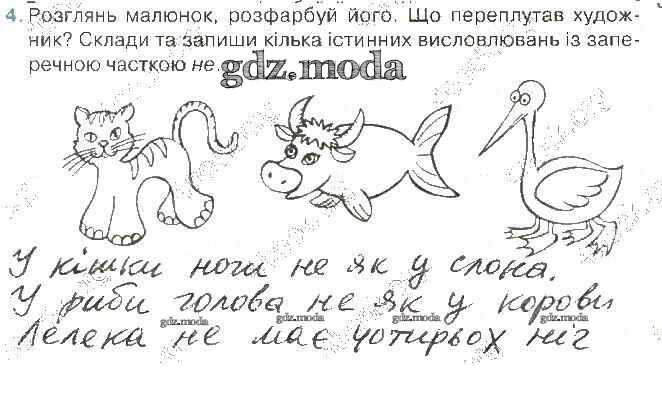 4. Розглянь малюнок, розфарбуй його. Що переплутав худож-
ник? Склади та запиши кілька істинних висловлювань із запе-
речною часткою не.
gdz.moda
У кішки ноги не як у слона.
У риби голова не як у корови
gdz.moda gdz.moda
Лелека не має чотирьох ніг